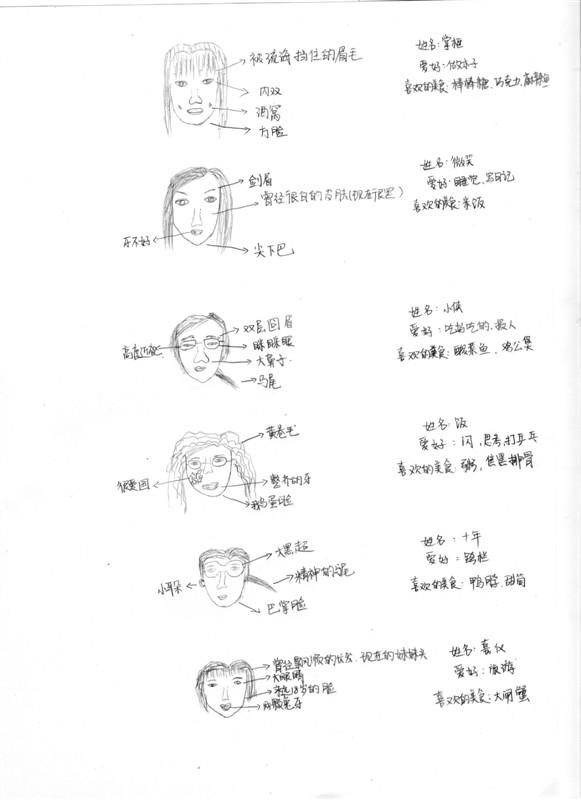 被流海挡住的眉毛
内双
酒窝
方脸
姓名:掌柜
爱好:做木子
喜欢的美食:棒棒糖、巧克力、
剑眉
曾经很白的皮肤(现在很黑)
牙不好
尖下巴
姓名:微笑
爱好:睡觉、写日记
喜欢的美食:米饭
双层回眉
高度近视
眯眯眼
大鼻子
马尾
姓名:小侠
爱好:吃好吃的、损人
喜欢的美食:酸菜鱼、鸡公煲
黄卷毛
很爱国
整齐的牙
鹅蛋脸
姓名:饭
爱好:闪,思考,打乒乓
喜欢的美食:粥,焦黑排骨
大黑超
小耳朵
精神的辫
巴掌脸
姓名:十年
爱好:
喜欢的美食:鸭脖,甜筒
曾经飘飘的长发,现在的妹妹头
大眼睛
18岁的脸
姓名:喜仪
爱好:旅游
喜欢的美食:大闸蟹